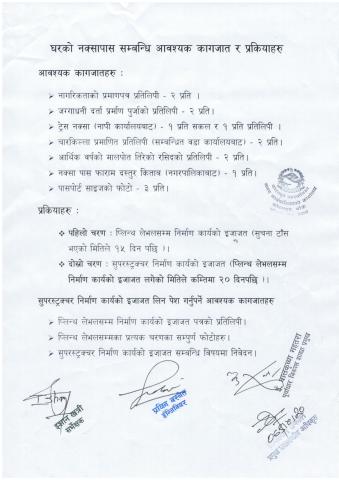 घरको नक्सापास सम्बन्धि आवश्यक कागजात र प्रकियाहरु
आवश्यक कागजातहरु :
➢ नागरिकताको प्रमाणपत्र प्रतिलिपी - २ प्रति ।
➢ जग्गाधनी दर्ता प्रर्माण पुर्जाको प्रतिलिपी - २ प्रति।
➢ ट्रेस नक्सा (नापी कार्यालयबाट) - १ प्रति सकल र १ प्रति प्रतिलिपी ।
➢ चारकिल्ला प्रमाणित प्रतिलिपी (सम्बन्धित वडा कार्यालयबाट) - २ प्रति।
➢ आर्थिक वर्षको मालपोत तिरेको रसिदको प्रतिलिपी - २ प्रति।
➢ नक्सा पास फाराम दस्तुर किताव (नगरपालिकाबाट) - १ प्रति।
➢ पासपोर्ट साइजको फोटो - ३ प्रति।
प्रकियाहरु :
❖ पहिलो चरण : प्लिन्थ लेभलसम्म निर्माण कार्यको इजाजत (सुचना टाँस
भएको मितिले १५ दिन पछि ।)।
❖ दोस्रो चरण : सुपरस्ट्रक्चर निर्माण कार्यको इजाजत (प्लिन्थ लेभलसम्म
निर्माण कार्यको इजाजत लगेको मितिले कम्तिमा २० दिनपछि ।)।
सुपरस्ट्रक्चर निर्माण कार्यको इजाजत लिन पेश गर्नुपर्ने आवश्यक कागजातहरु
➢ प्लिन्थ लेभलसम्म निर्माण कार्यको इजाजत पत्रको प्रतिलिपी।
➢ प्लिन्थ लेभलसम्मका प्रत्यक चरणका सम्पुर्ण फोटोहरु।
➢ सुपरस्ट्रक्चर निर्माण कार्यको इजाजत सम्बन्धि विषयमा निवेदन।
इन्जिनियर